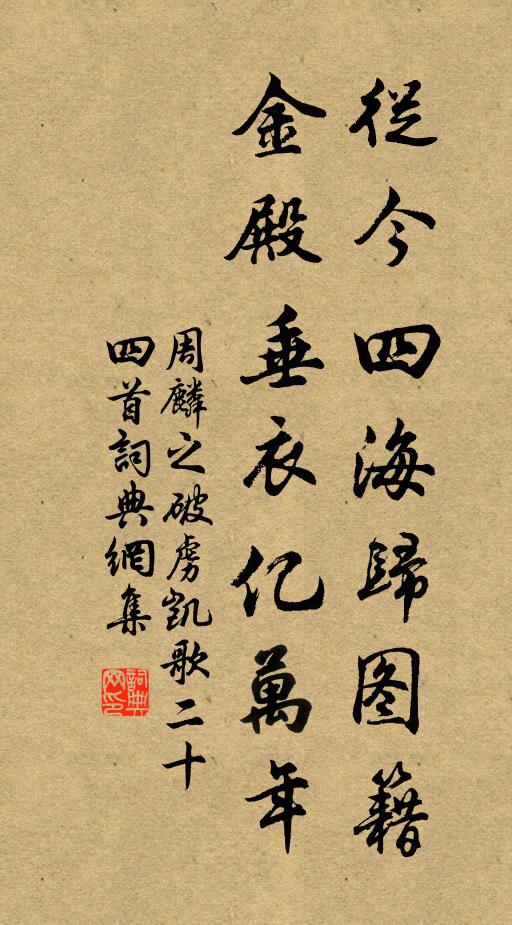 從今四海歸图籍
金殿垂衣亿萬年
周麟之破虜凱歌二十
四首詞典網集
詞典
网印